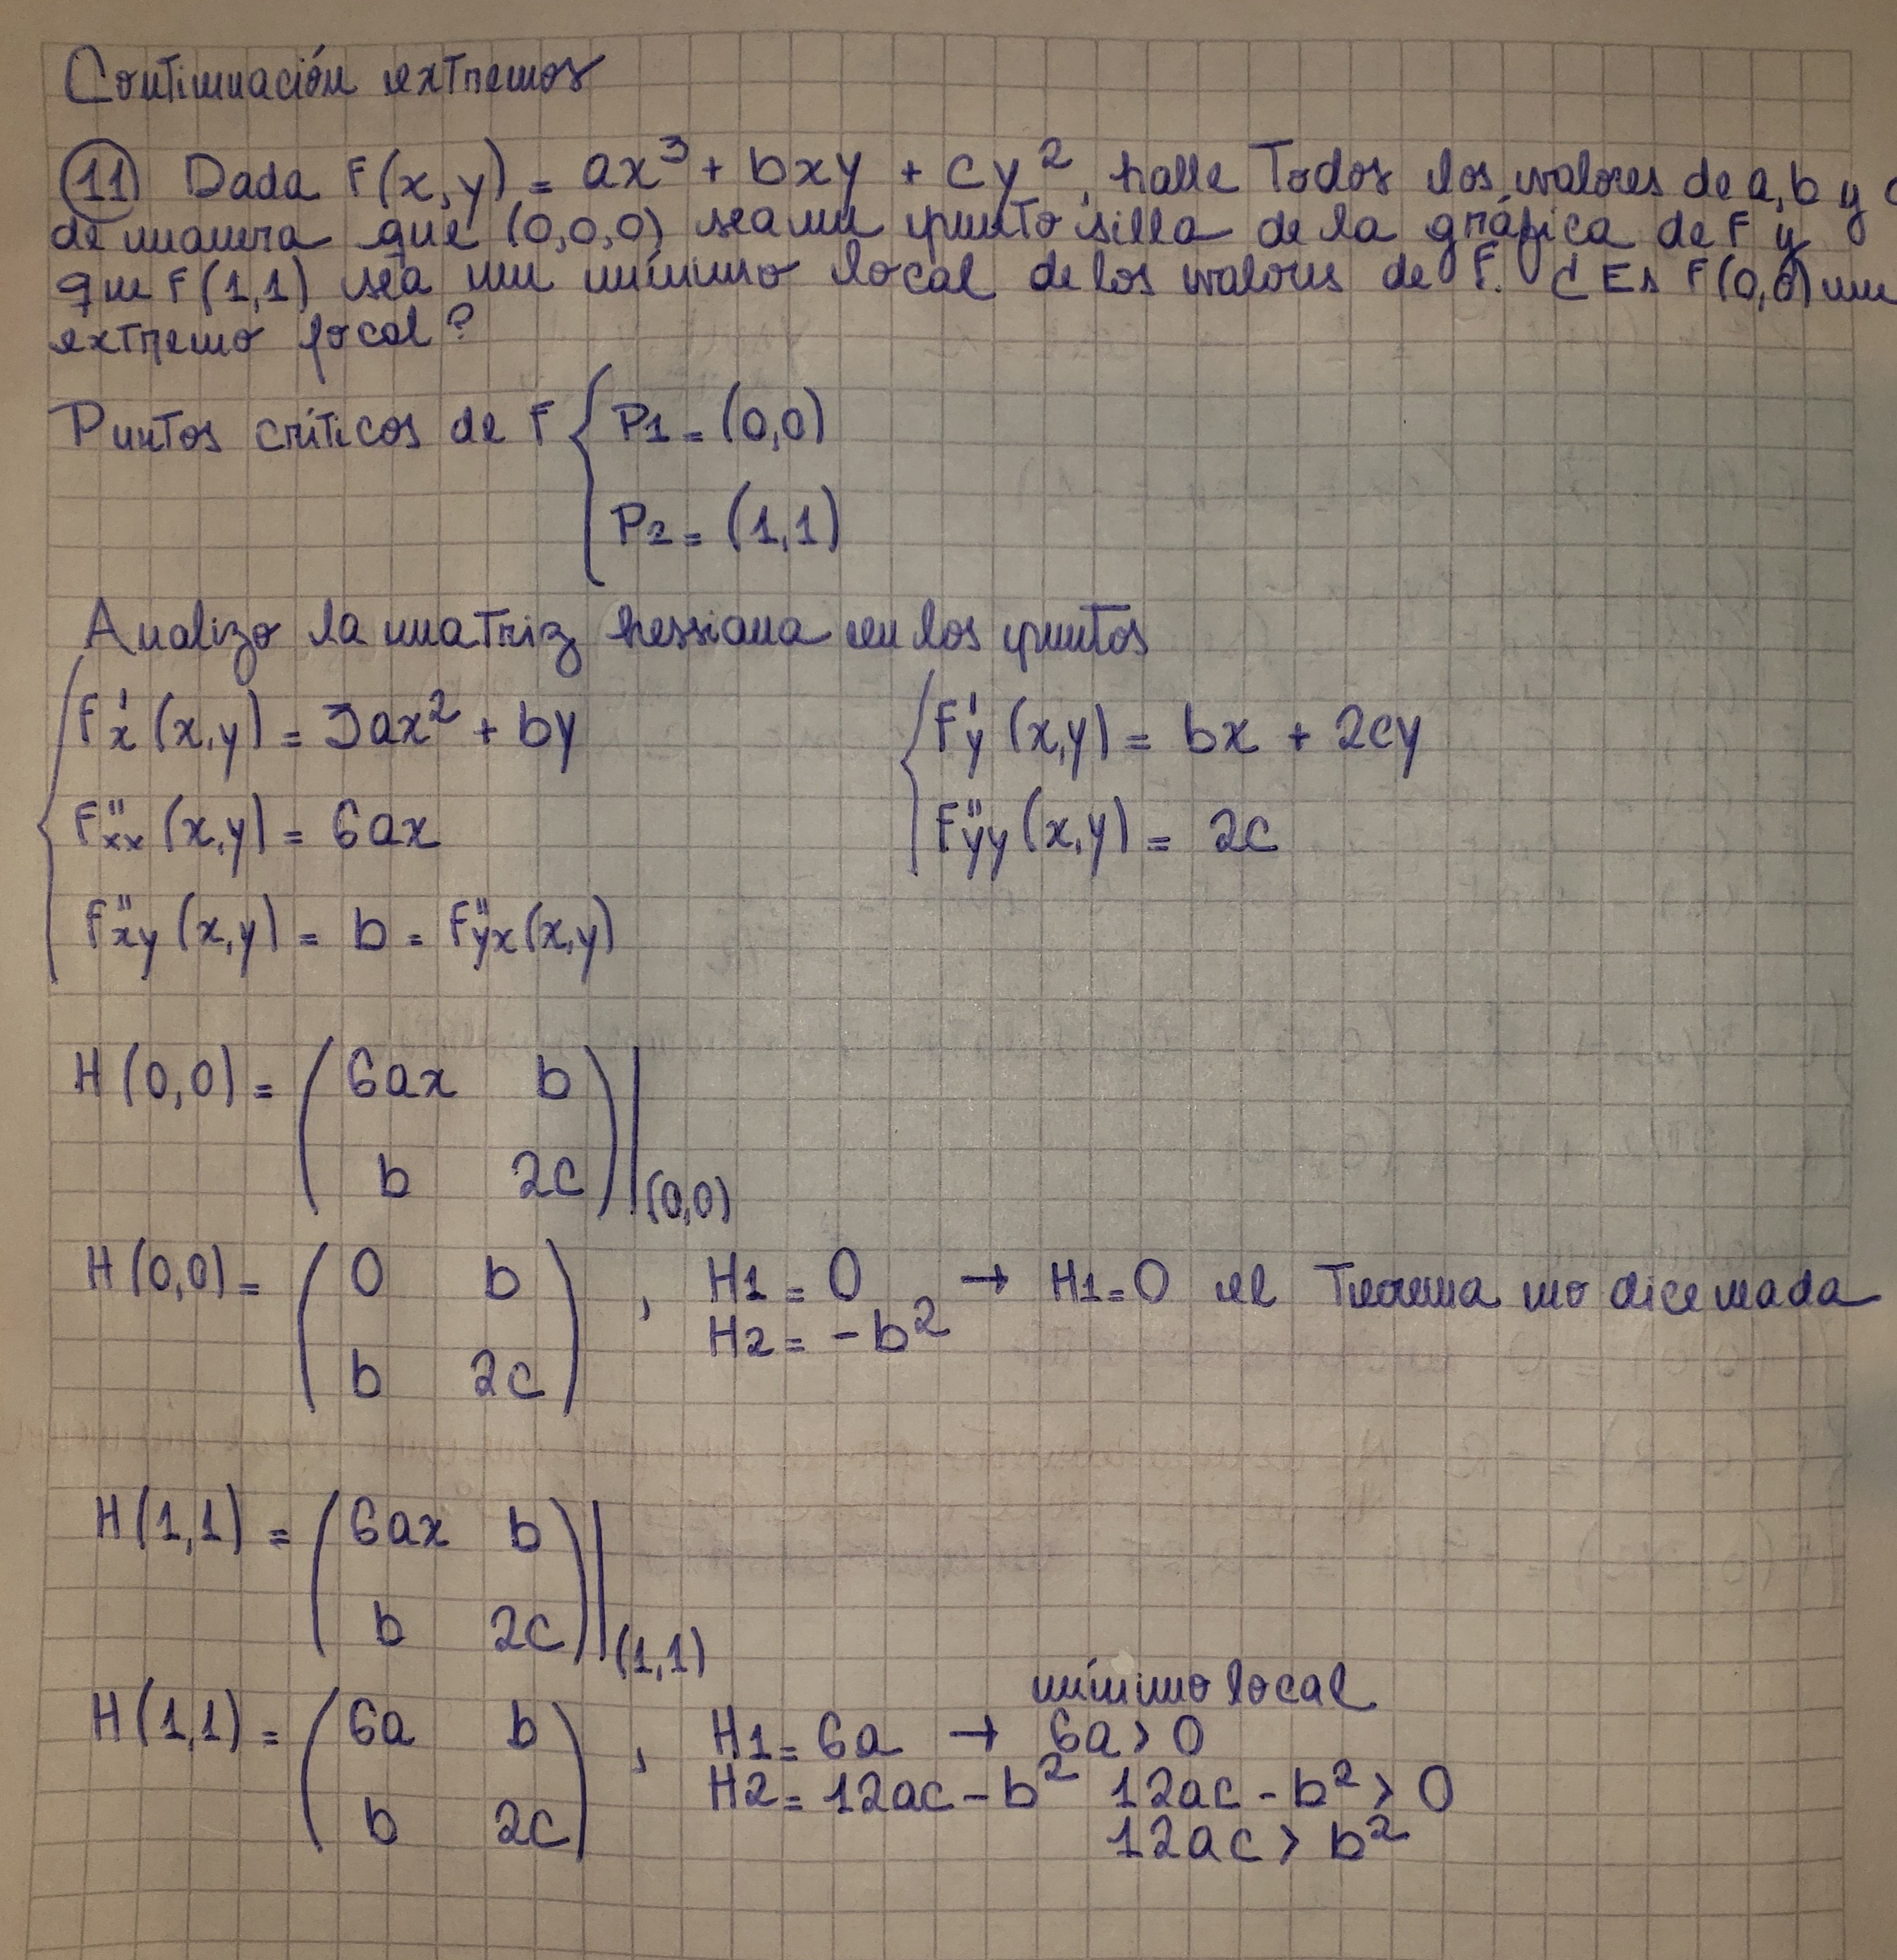 Continuación extremos
(11) Dada F(x,y) = ax³ + bxy + cy², halle Todos los valores de a, b y c
de manera que (0,0,0) sea un punto silla de la gráfica de F y
que F(1,1) sea un mínimo local de los valores de F. ¿Es F(0,0) un
extremo local?
Puntos críticos de F { P1 = (0,0)
P2 = (1,1)
Analizo la matriz hessiana en los puntos
F'x (x,y) = 3ax² + by
F'y (x,y) = bx + 2cy
F''xx (x,y) = 6ax
F''yy (x,y) = 2c
F''xy (x,y) = b = F''yx (x,y)
H(0,0) = ( 6ax b
b 2c ) |(0,0)
H(0,0) = ( 0 b
b 2c ) , H1 = 0 → H1 = 0 el Teorema no dice nada
H2 = -b²
H(1,1) = ( 6ax b
b 2c ) |(1,1)
mínimo local
H(1,1) = ( 6a b
b 2c ) , H1 = 6a → 6a > 0
H2 = 12ac - b² 12ac - b² > 0
12ac > b²